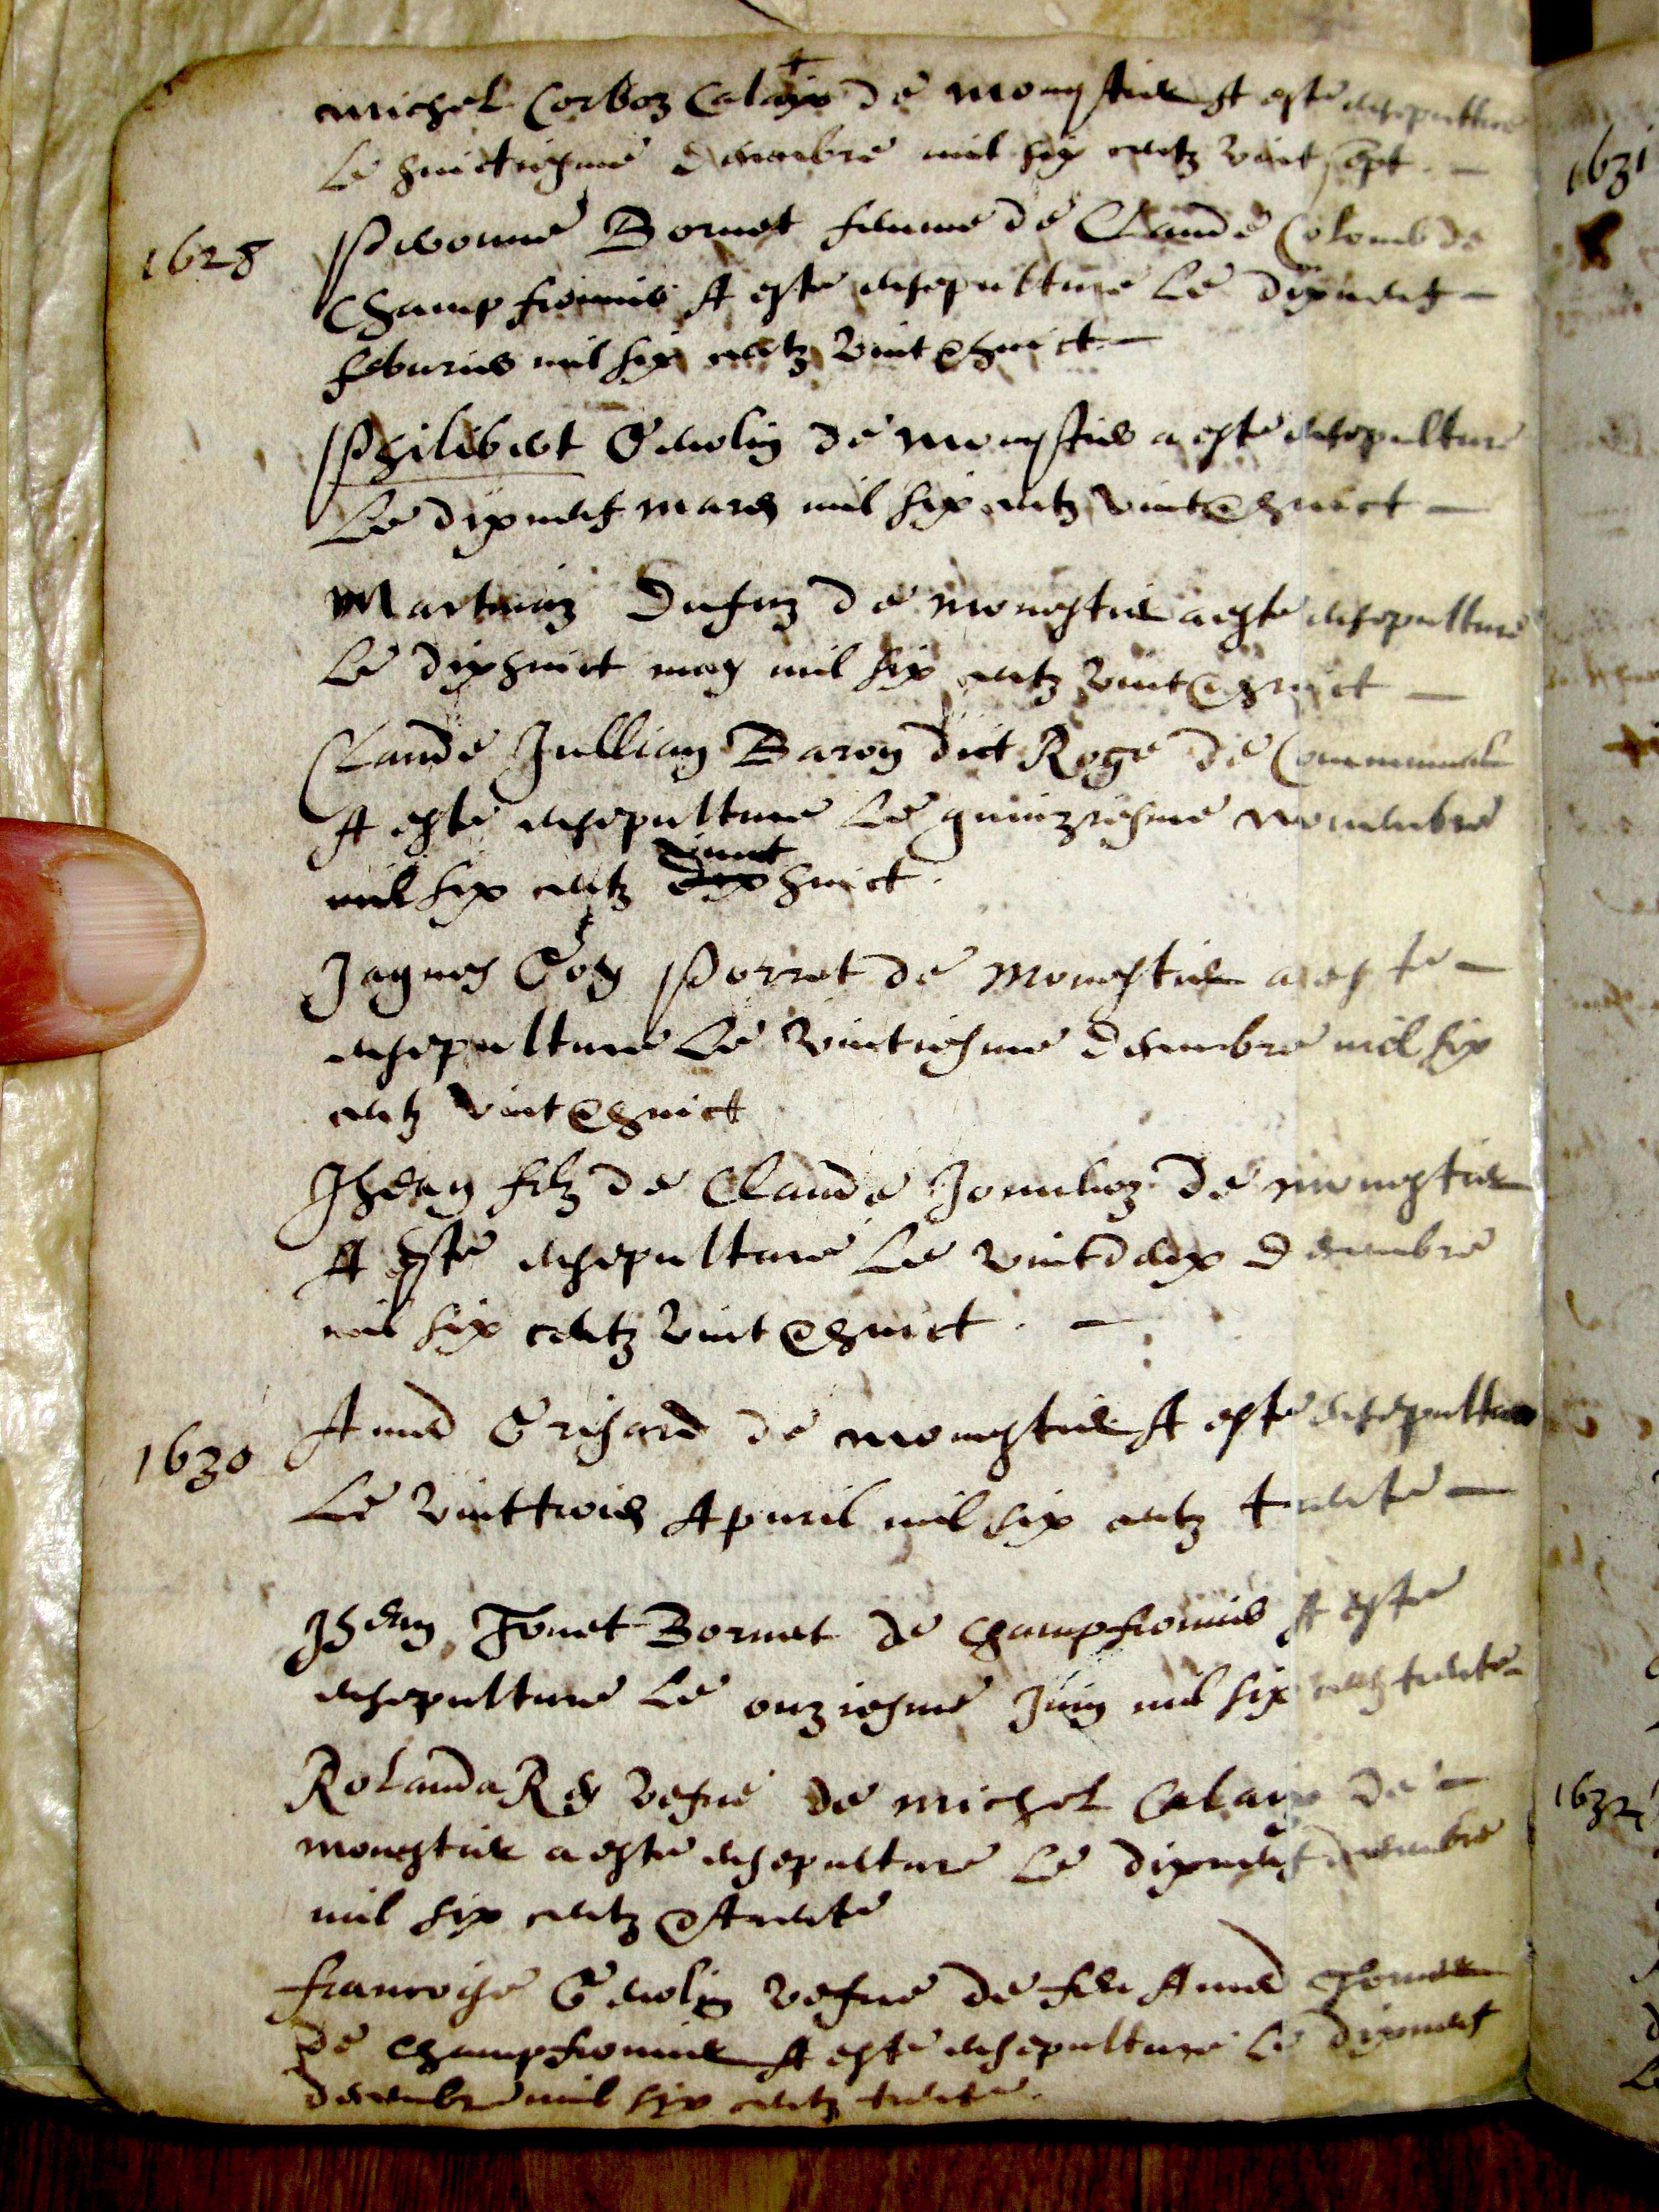 michel Corboz Calaix de monstier A este ensepulture
Le huictiesme decembre mil six centz vint sept. —
1628 Pivonne Bornet femme de Claude Colomb de
Champfromier A este ensepulture Le dixneuf —
feburier mil six centz vint & huict —
Philibert Genolin de monstier a este ensepulture
Le dixneuf mars mil six centz vint & huict —
de monestier a este ensepulture
Le dixhuict may mil six centz vint & huict —
Claude Jullian Baron dict Roge de Communal
A este ensepulture Le quinziesme novembre
mil six centz vint huict.
Jaques Coz Porret de monestier a este —
ensepulture Le vintiesme decembre mil six
centz vint & huict
Jhean filz de Claude de monestier
A este ensepulture Le vintdeux decembre
mil six centz vint & huict. —
1630 Amed Grisard de monestier A este ensepulture
Le vinttrois Apuril mil six centz trente —
Jhean Bornet de Champfromier A este
ensepulture Le onziesme Juin mil six centz trente —
Rolanda Rey vefue de michel Calaix de —
monestier a este ensepulture Le dixneuf decembre
mil six centz & trente
francoise Genolin vefue de feu Amed
de champfromier A este ensepulture Le dixneuf
decembre mil six centz trente.
1631
1632